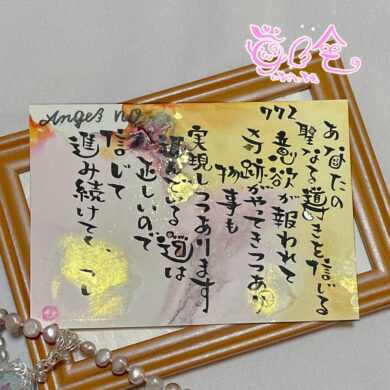 Angel no
772
あなたの
聖なる導きを信じる
意欲が報われて
奇跡がやってきつつあり
物事も
実現しつつあります
選んでいる道は
正しいので
信じて
進み続けて